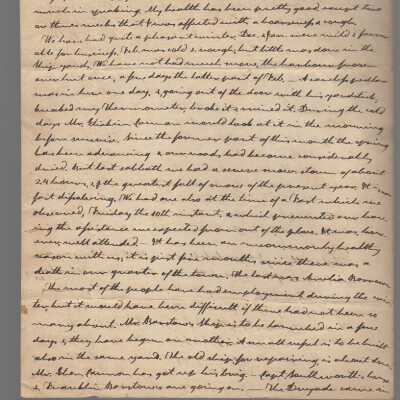 much in speaking. My health has been pretty good except two
or three weeks that I was affected with a hoarseness & cough.
We have had quite a pleasant winter. Dec. & Jan. were mild & favor-
able for business, Feb. was cold & rough, but little was done in the
Ship yard, We have not had much snow, the harbour froze
over but once, a few days the latter part of Feb. A careless pedlar
was in here one day, & going out of the door with his yardstick,
knocked my Thermometer, broke it & ruined it. During the cold
days Mr. would look at it in the morning
before sunrise. Since the former part of this month the spring
has been advancing & our roads had become considerably
dried. But last sabbath we had a severe snow storm of about
24 hours, & the greatest fall of snow of the present year. It is now
fast disappearing. We had one also at the time of a Fast which we
observed, Friday the 10th instant, & which prevented our hav-
ing the assistance we expected from out of the place. It was how-
ever well attended. It has been an uncommonly healthy
season with us, it is just five months since there was a
death in our quarter of the town, the last was Amelia
The most of the people have had employment during the win-
ter, but it would have been difficult if there had not been so
many about. Mr. Barstow's Ship is to be launched in a few
days & they have begun on another. A small vessel is to be built
also in the same yard. The old ship for repairing is about done.
Mr. Eben Cannon has got up his brig. Capt Southworth's house
& Franklin Barstow's are going on. The Brigade came in